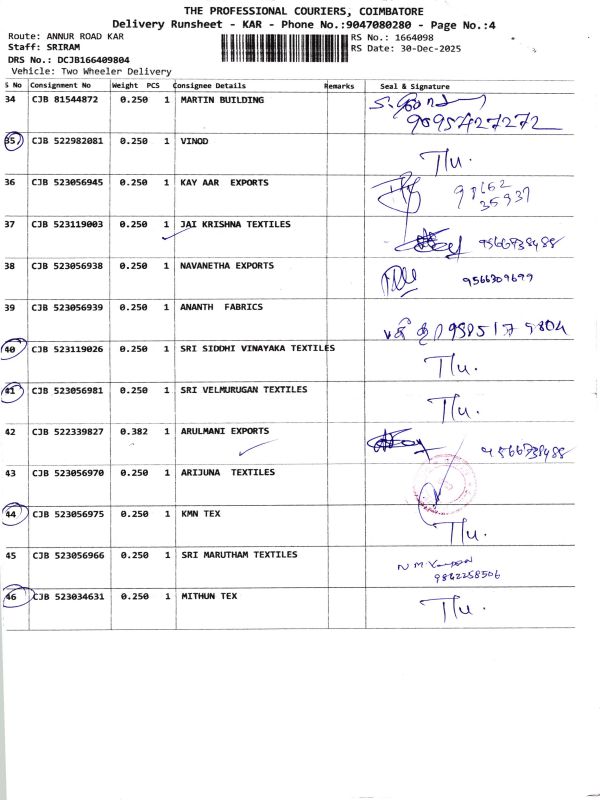 THE PROFESSIONAL COURIERS, COIMBATORE
Delivery Runsheet - KAR - Phone No.:9047080280 - Page No.:4
Route: ANNUR ROAD KAR
RS No.: 1664098
Staff: SRIRAM
RS Date: 30-Dec-2025
DRS No.: DCJB166409804
Vehicle: Two Wheeler Delivery
S No Consignment No Weight PCS Consignee Details Remarks Seal & Signature
34 CJB 81544872 0.250 1 MARTIN BUILDING
35 CJB 522982081 0.250 1 VINOD T/u.
36 CJB 523056945 0.250 1 KAY AAR EXPORTS
37 CJB 523119003 0.250 1 JAI KRISHNA TEXTILES
38 CJB 523056938 0.250 1 NAVANETHA EXPORTS 9566309699
39 CJB 523056939 0.250 1 ANANTH FABRICS
40 CJB 523119026 0.250 1 SRI SIDDHI VINAYAKA TEXTILES T/u.
41 CJB 523056981 0.250 1 SRI VELMURUGAN TEXTILES T/u.
42 CJB 522339827 0.382 1 ARULMANI EXPORTS
43 CJB 523056970 0.250 1 ARIJUNA TEXTILES
44 CJB 523056975 0.250 1 KMN TEX T/u.
45 CJB 523056966 0.250 1 SRI MARUTHAM TEXTILES
9862258506
46 CJB 523034631 0.250 1 MITHUN TEX T/u.